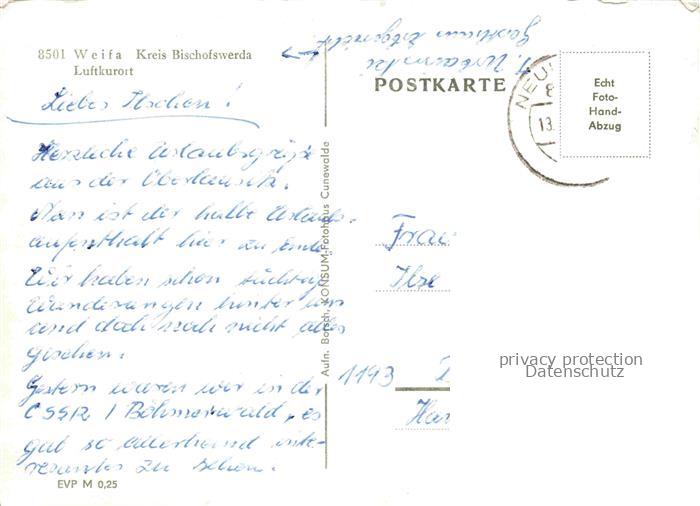 8501 Weifa Kreis Bischofswerda
Luftkurort
POSTKARTE
Echt
Foto-
Hand-
Abzug
NEU
8
13.
Liebes
Herzliche Urlaubsgrüße
aus der Oberlausitz.
Nun ist der halbe Urlaubs-
aufenthalt hier zu Ende.
Wir haben schon tüchtige
Wanderungen hinter uns
und doch noch nicht alles
gesehen.
Gestern waren wir in der
CSSR / Böhmerwald, es
gab so allerhand inte-
ressantes zu sehen.
Frau
Ilse
1193
Aufn. Borsch, KONSUM-Fotohaus Cunewalde
EVP M 0,25
privacy protection
Datenschutz